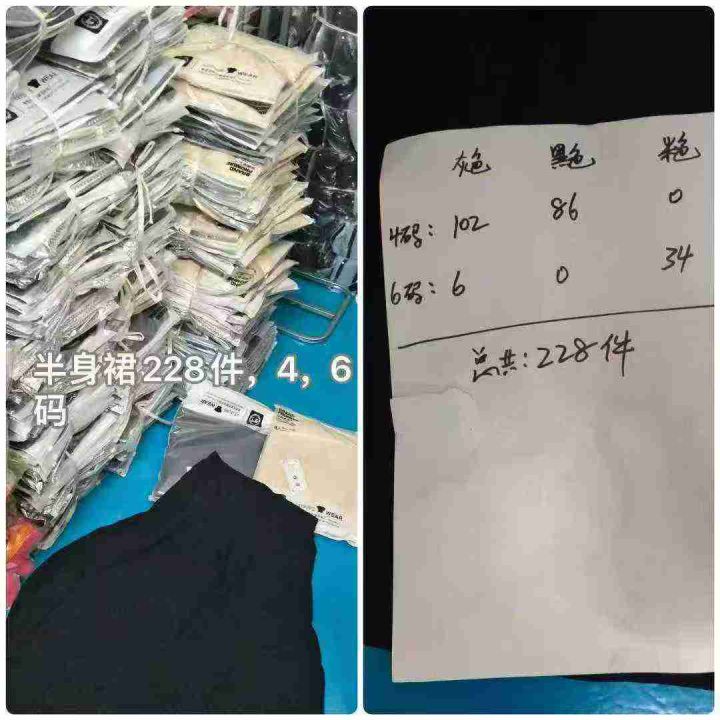 WEAR
WEAR
半身裙228件，4，6
码
WEAR
灰色 黑色 米色
4码： 102 86 0
6码： 6 0 34
总共：228件